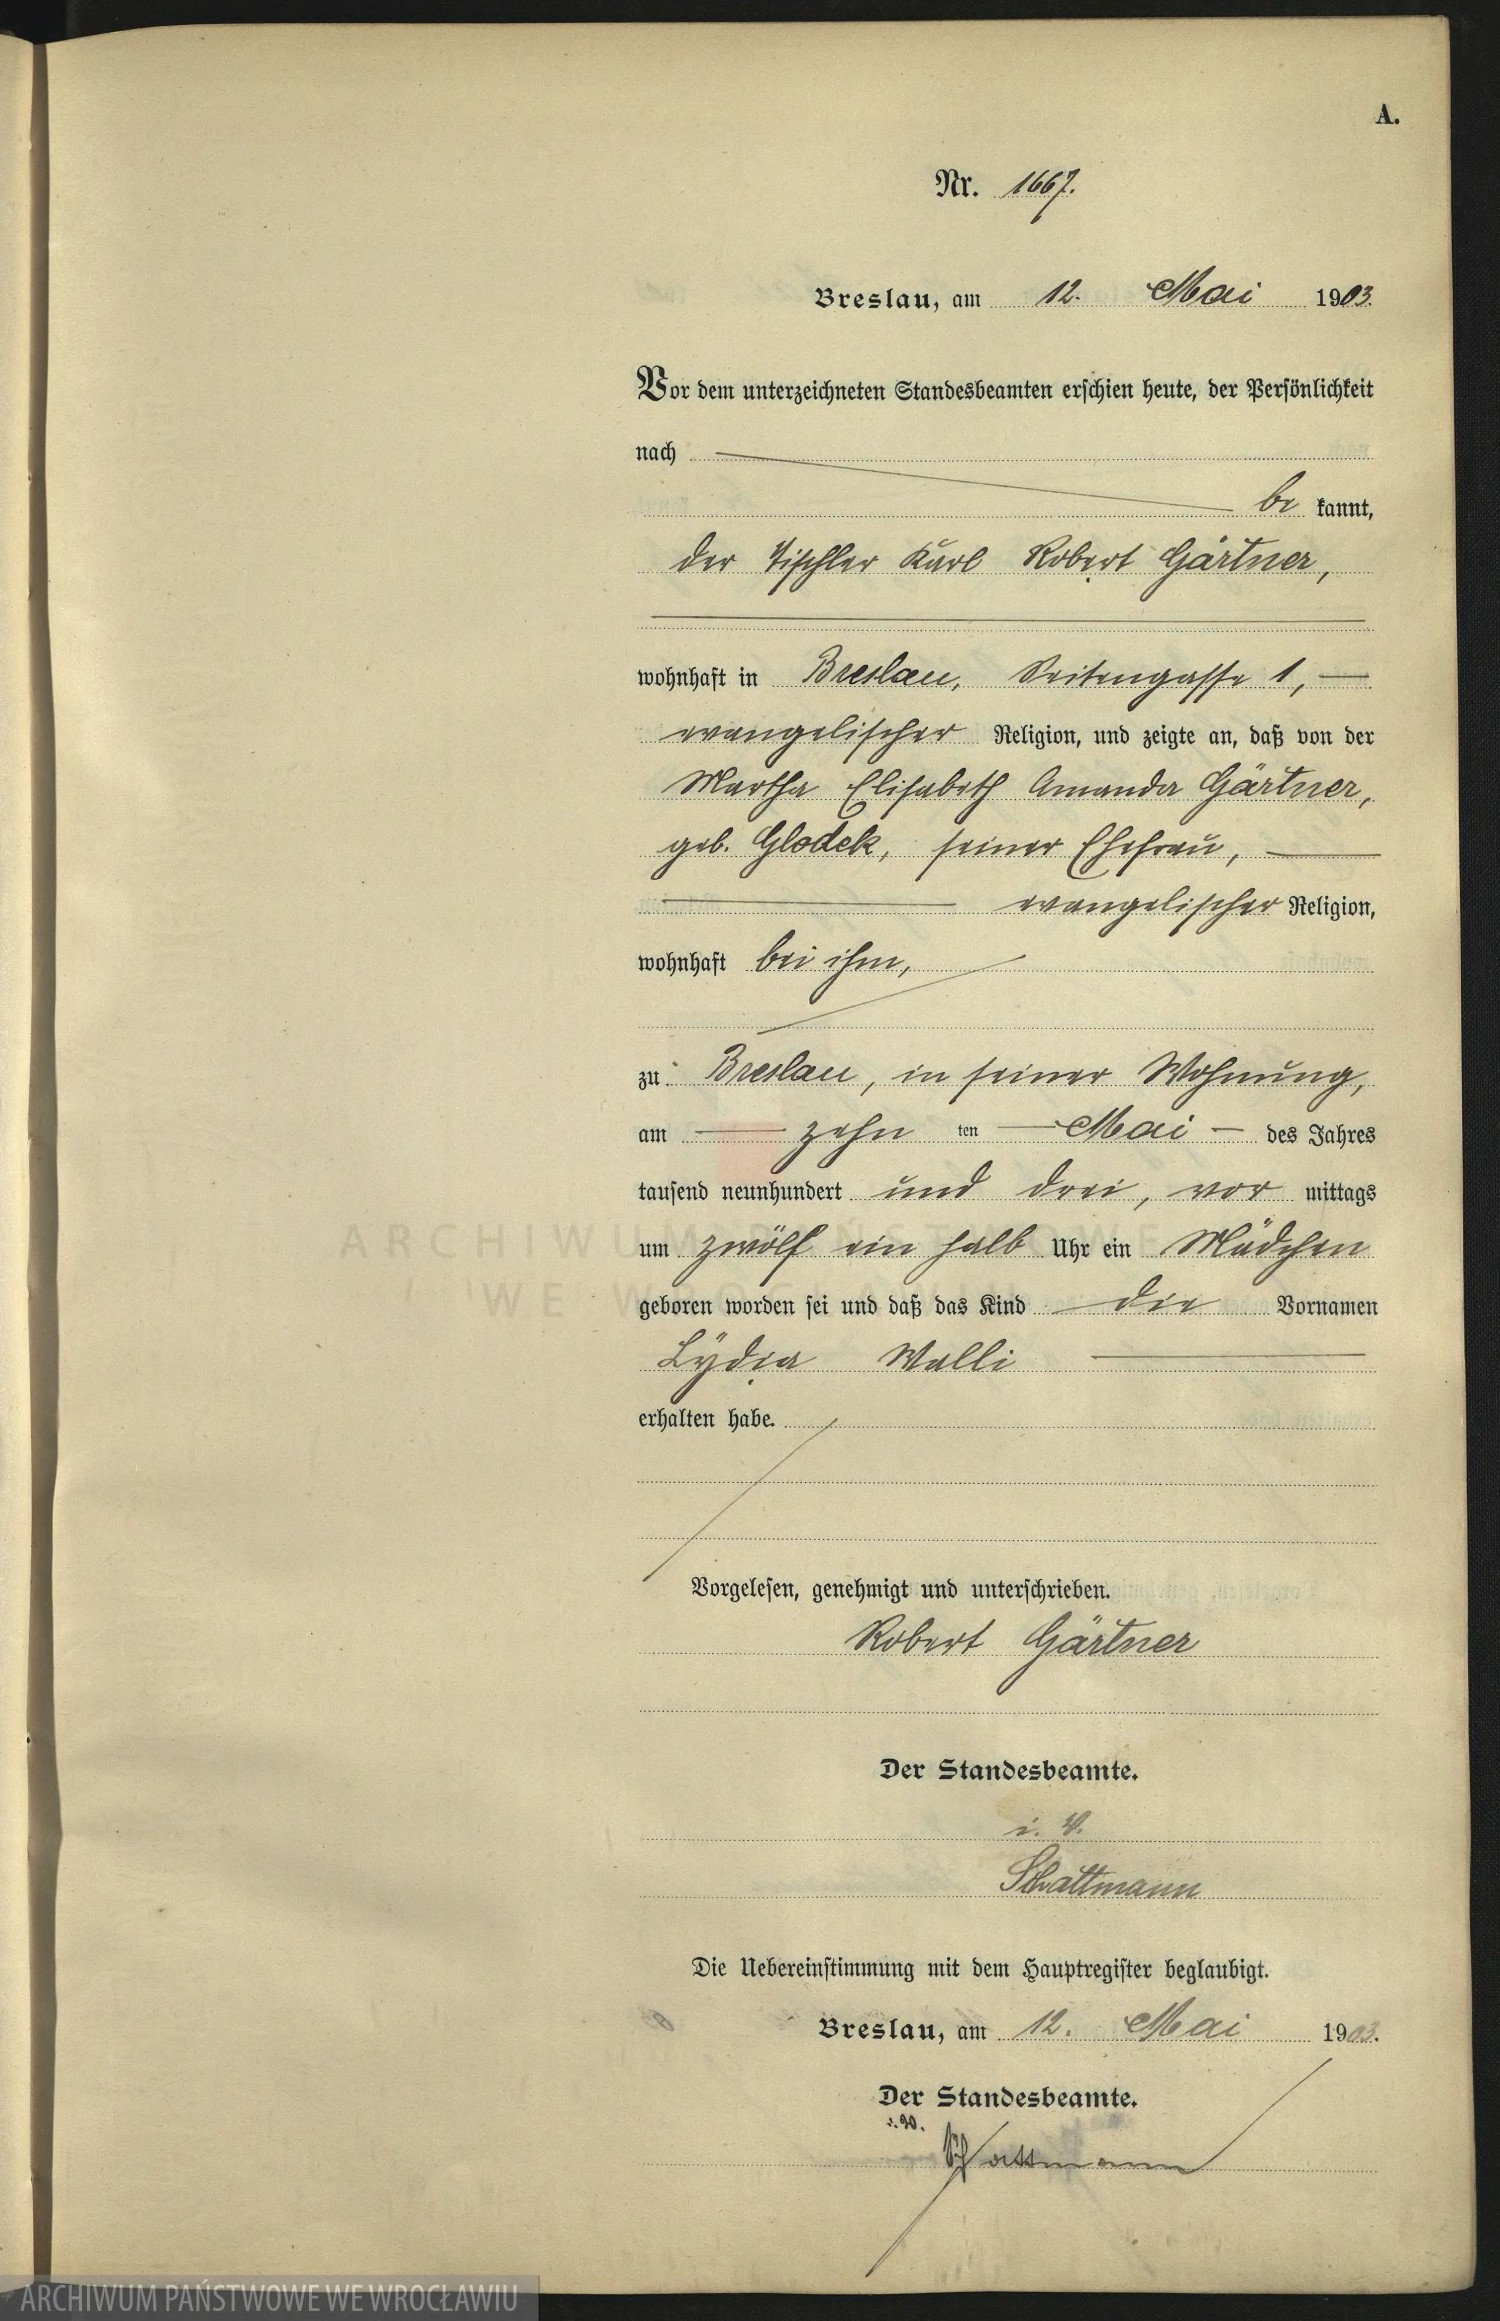 A.
Nr. 1667.
Breslau, am 12. Mai 1903.
Vor dem unterzeichneten Standesbeamten erschien heute, der Persönlichkeit
nach
be kannt,
der Tischler Karl Robert Gärtner,
wohnhaft in Breslau, Seitengasse 1,
evangelischer Religion, und zeigte an, daß von der
Martha Elisabeth Amanda Gärtner,
geb. Glodek, seiner Ehefrau,
evangelischer Religion,
wohnhaft bei ihm,
zu Breslau, in seiner Wohnung,
am zehn ten Mai des Jahres
tausend neunhundert und drei, vor mittags
um zwölf ein halb Uhr ein Mädchen
geboren worden sei und daß das Kind die Vornamen
Lydia Walli
erhalten habe.
Vorgelesen, genehmigt und unterschrieben.
Robert Gärtner
Der Standesbeamte.
i. V.
Schattmann
Die Uebereinstimmung mit dem Hauptregister beglaubigt.
Breslau, am 12. Mai 1903.
Der Standesbeamte.
i. V.
Schattmann
ARCHIWUM PAŃSTWOWE
WE WROCŁAWIU
ARCHIWUM PAŃSTWOWE WE WROCŁAWIU